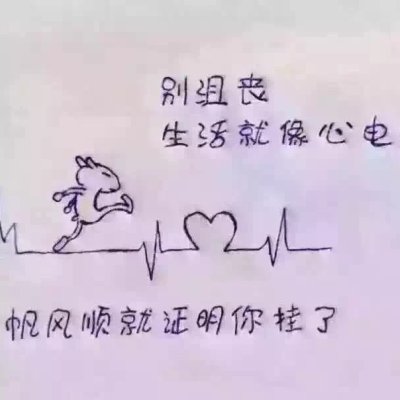 别沮丧
生活就像心电
帆风顺就证明你挂了